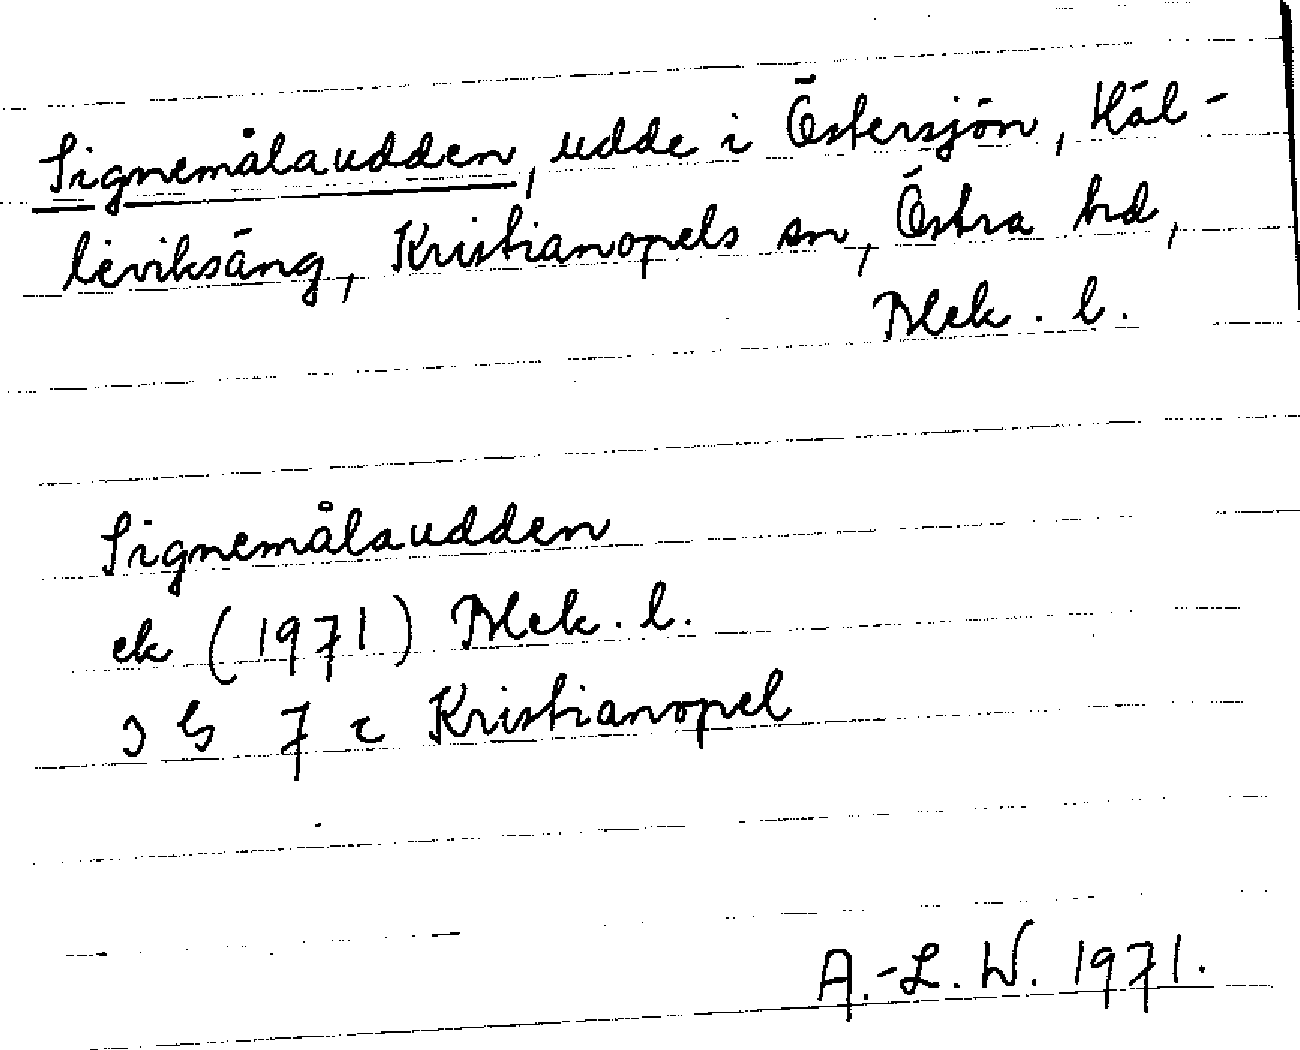 Signemålaudden, udde i Östersjön, Häl-
leviksäng, Kristianopels sn, Östra hd,
Blek. l.
Signemålaudden
ek (1971) Blek. l.
3 G 7 c Kristianopel
A.-L. W. 1971.